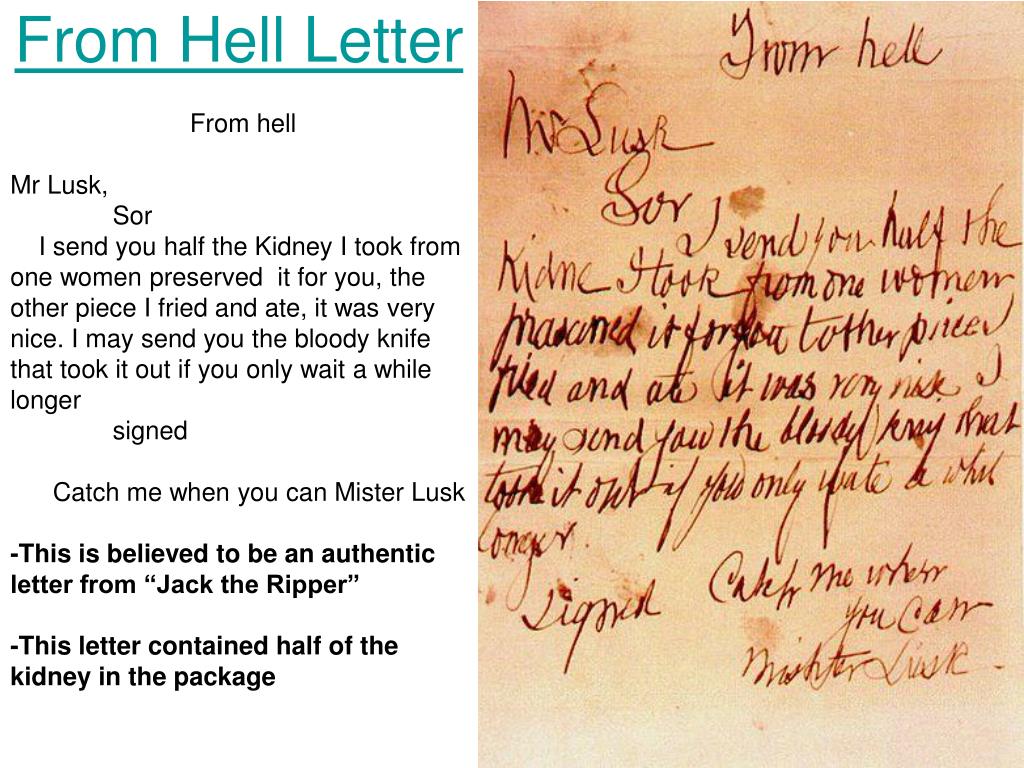 From Hell Letter
From hell
Mr Lusk,
Sor
I send you half the Kidney I took from
one women preserved  it for you, the
other piece I fried and ate, it was very
nice. I may send you the bloody knife
that took it out if you only wait a while
longer
signed
Catch me when you can Mister Lusk
-This is believed to be an authentic
letter from “Jack the Ripper”
-This letter contained half of the
kidney in the package
From hell
Mr Lusk
Sor
I send you half the
Kidne I took from one women
prasarved it for you tother piece I
fried and ate it was very nise I
may send you the bloody knif that
took it out if you only wate a whil
longer.
Signed
Catch me when
you Can
Mishter Lusk -